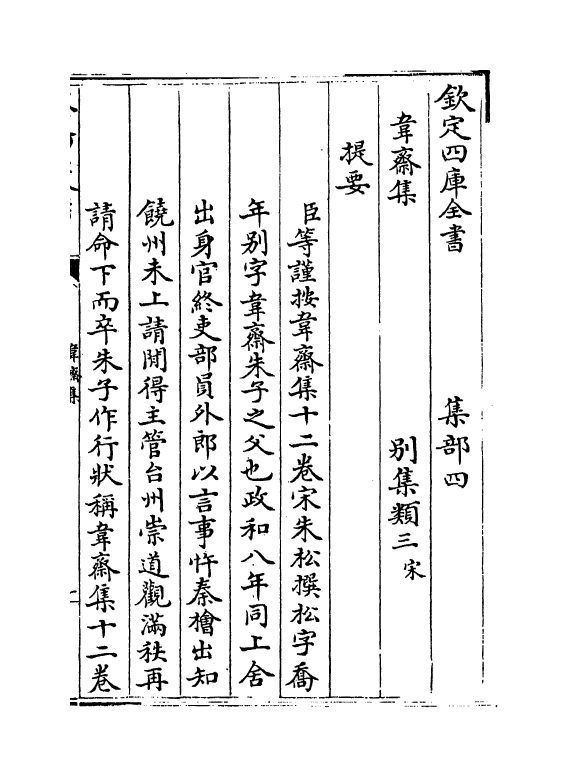 欽定四庫全書　集部四
韋齋集　別集類三宋
提要
臣等謹按韋齋集十二卷宋朱松撰松字喬
年別字韋齋朱子之父也政和八年同上舍
出身官終吏部員外郎以言事忤秦檜出知
饒州未上請閒得主管台州崇道觀滿秩再
請命下而卒朱子作行狀稱韋齋集十二卷
韋齋集